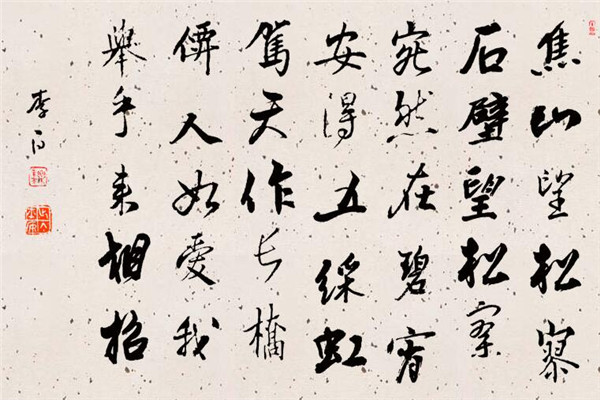 焦山望松寥
石壁望松寥
宛然在碧霄
安得五綵虹
駕天作長橋
僊人如愛我
舉手來相招
李白